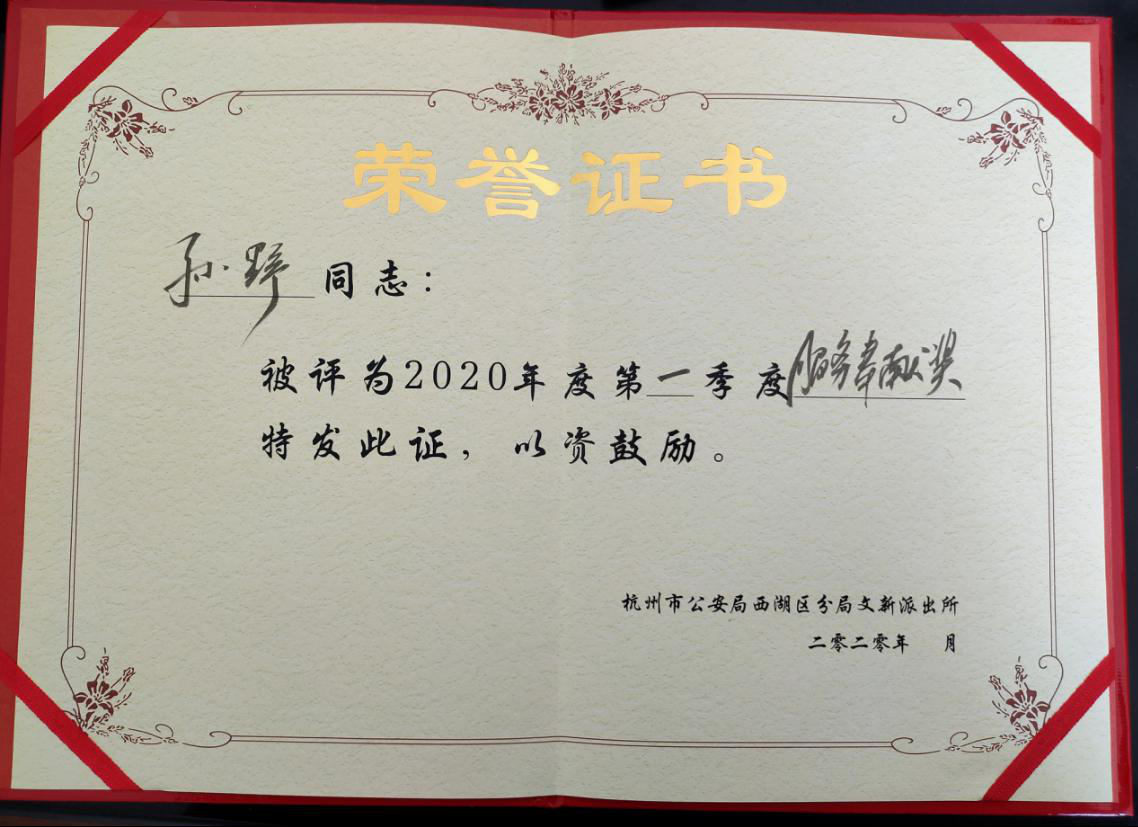 荣誉证书
孙野 同志：
被评为2020年度第一季度服务奉献奖
特发此证，以资鼓励。
杭州市公安局西湖区分局文新派出所
二零二零年 月